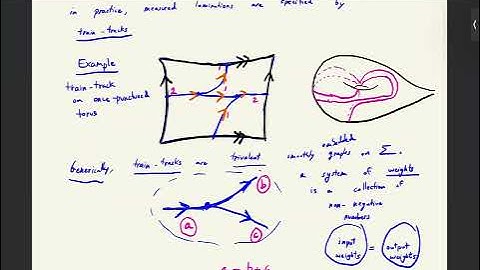 in practice, measured laminations are specified by
train-tracks
Example
train-track
on once-punctured
torus
2
2
Generically, train-tracks are trivalent smoothly embedded graphs on Σ.
a system of weights
is a collection of
non-negative
numbers
a
b
c
input weights = output weights
a = b + c